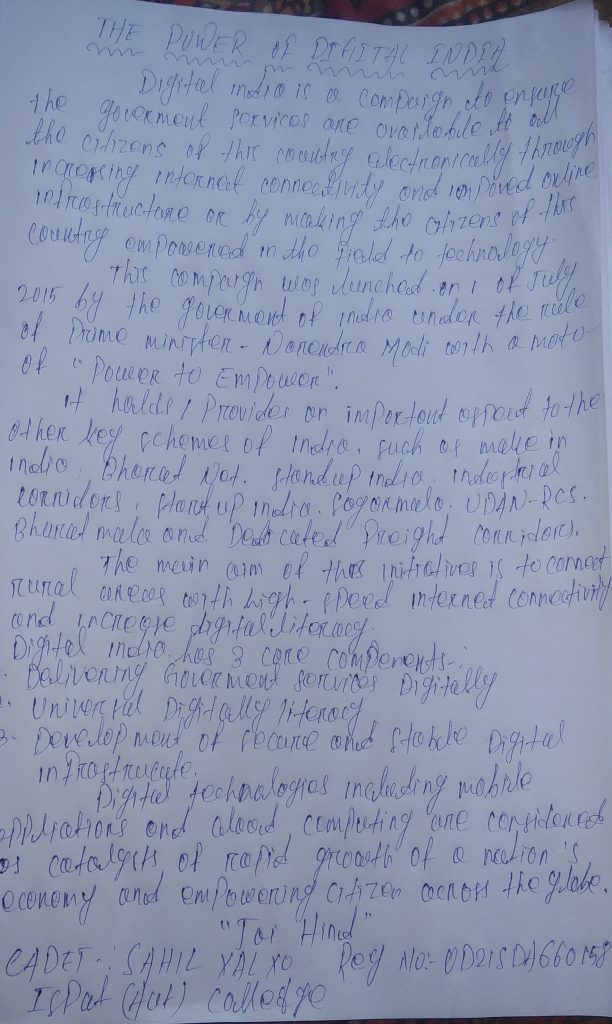 THE POWER of DIGITAL INDIA
Digital india is a compaign to ensure
the goverment services are available to all
the citizens of this country electronically through
increasing internet connectivity and impoved online
infrostructure or by making the citizens of this
country empowered in the field to technology.
This compaign was lunched on 1 of July
2015 by the goverment of india under the rule
of Prime minister - Narendra Modi with a moto
of "Power to Empower".
it holds / Provides an important aspect to the
other key schemes of india. such as make in
india. Bharat Net. standup india. industrial
corridors. start up india. Sagarmala. UDAN-RCS.
Bharat mala and Dedicated Freight corridors.
The main aim of this initiatives is to connect
rural areas with high-speed internet connectivity
and increase digital literacy.
Digital india has 3 core compenents:
Delivering Goverment services Digitally
Universal Digitally literacy
3. Development of secure and stable Digital
infrostrucate.
Digital technologies including mobile
applications and cloud computing are considered
as catalysts of rapid growth of a nation's
economy and empowering citizen across the globe.
"Jai Hind"
CADET:- SAHIL XALXO Reg No:- OD21SDA660158
IsPat (Aut) college